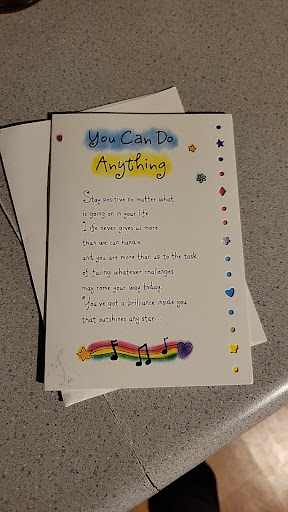 You Can Do
Anything
Stay positive no matter what
is going on in your life.
Life never gives us more
than we can handle,
and you are more than up to the task
of facing whatever challenges
may come your way today.
You've got a brilliance inside you
that outshines any star...